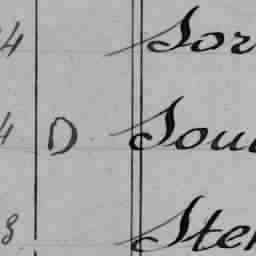 4 Sor
4 D Sou
8 Ster